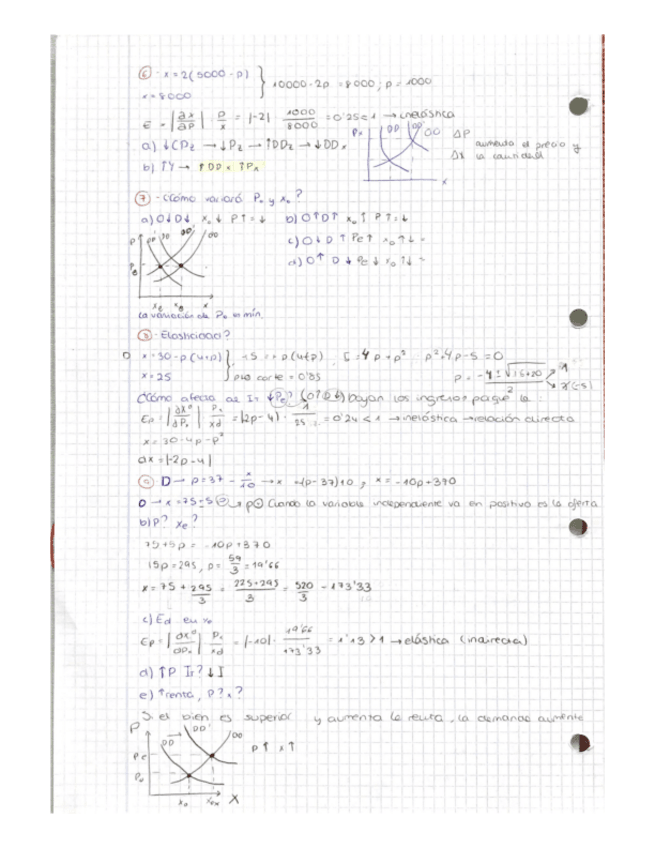 ⑥ · x = 2(5000 - p) } 10000 - 2p = 8000 ; p = 1000
x = 8000
E = |∂x/∂p| · p/x = |-2| · 1000/8000 = 0'25 < 1 → inelástica
a) ↓CPz → ↓Pz → ↑DDz → ↓DDx
b) ↑Y → ↑DDx ↑Px
Px DD DD' OO ΔP
Δx
aumenta el precio y
la cantidad
x
⑦ · ¿Cómo variará Po y xo?
a) O↓ D↓ xo ↓ P↑=↓ b) O↑ D↑ xo ↑ P↑=↓
c) O↓ D↑ Pe↑ xo ↑↓=
d) O↑ D↓ Pe↓ xo ↑↓=
P
Pe
x
La variación de Po la mín.
⑧ · Elasticidad?
x = 30 - p(4+p) } p² + 4p - 5 = 0
x = 25
p = -4 ± √16+20 / 2
¿Cómo afecta al I? ↓Pe? (O↑D↓) Bajan los ingresos porque la:
Ep = |∂xd/∂Po| · Po/xd = |2p - 4| · 1/25 = 0'24 < 1 → inelástica → relación directa
x = 30 - 4p - p²
∂x = |-2p - 4|
⑨ · D → p = 37 - x/10 → x = -(p - 37)10 , x = -10p + 370
O → x = 75 + 5p → p⊕ Cuando la variable independiente va en positivo es la oferta
b) P? xe?
75 + 5p = -10p + 370
15p = 295 , p = 59/3 = 19'66
x = 75 + 295/3 = 225+295/3 = 520/3 = 173'33
c) Ed en xo
Ep = |∂xd/∂Po| · Po/xd = |-10| · 19'66/173'33 = 1'13 > 1 → elástica (indirecta)
d) ↑P I? ↓I
e) ↑renta, P? x?
Si el bien es superior y aumenta la renta, la demanda aumenta
P DD DD' OO
P↑ x↑
Pe
Po
xo X